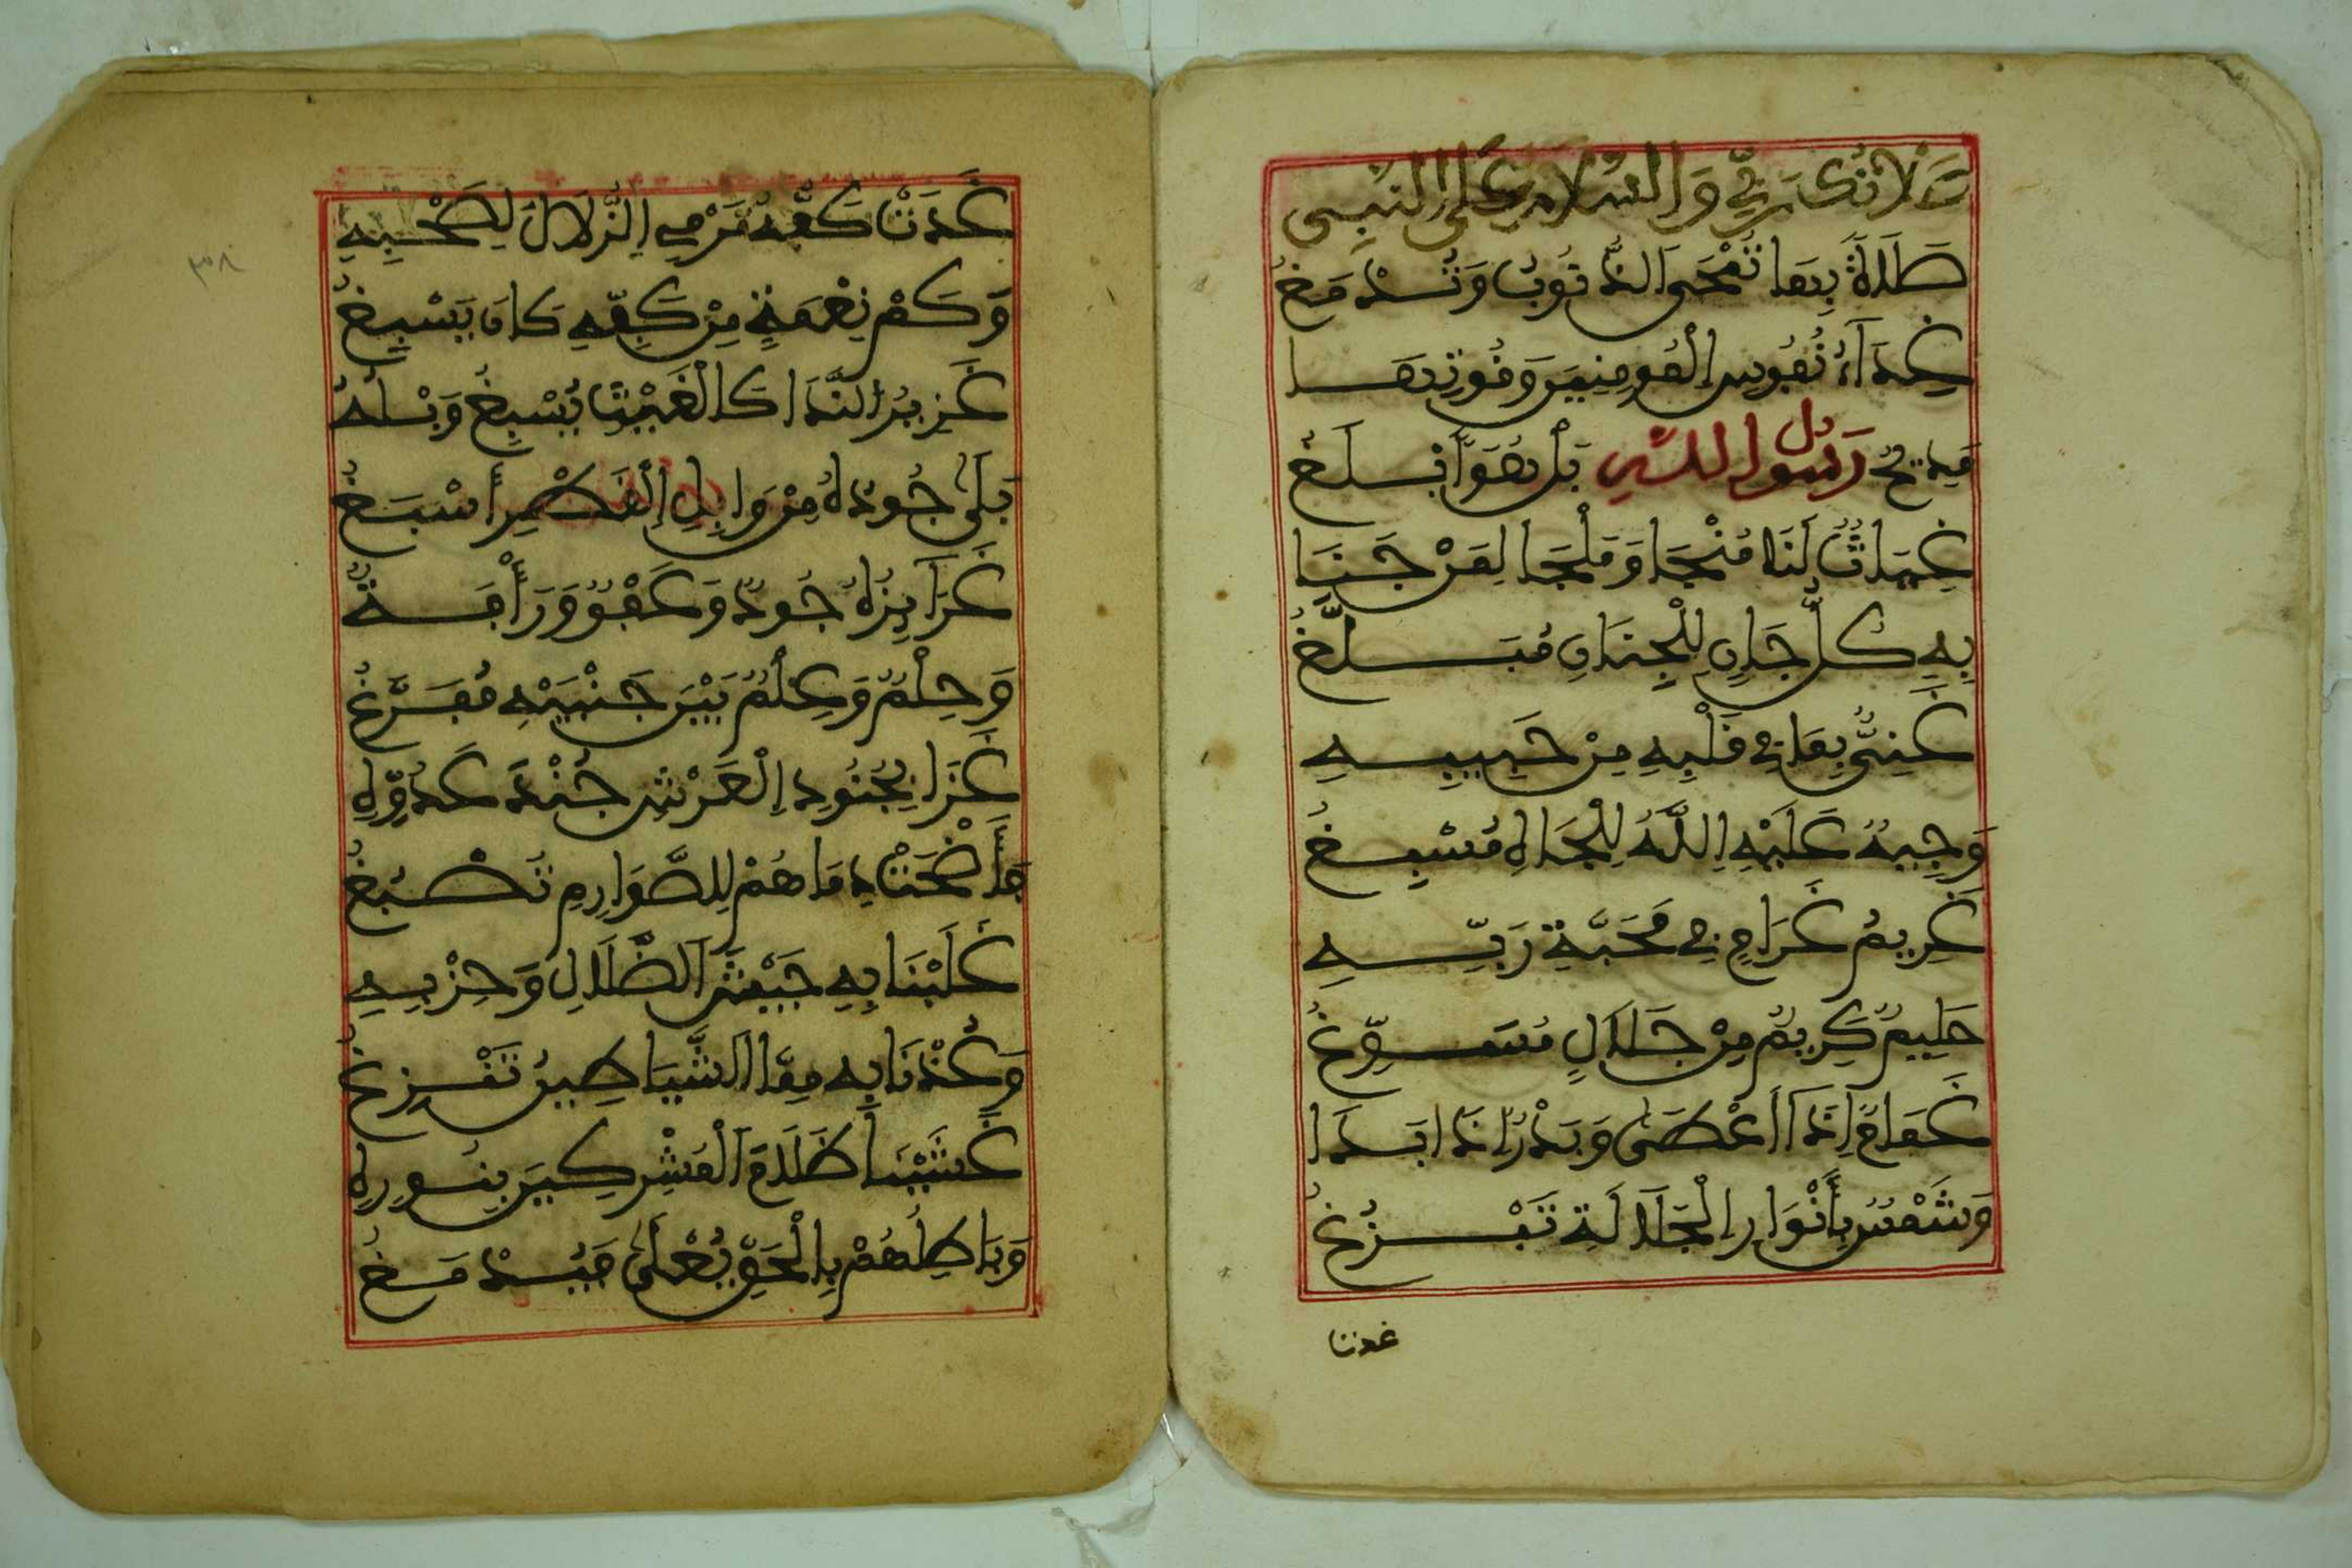 صَلَاةُ رَبِّي وَالسَّلَامُ عَلَى النَّبِي
صَلَاةً بِهَا تُمْحَى الذُّنُوبُ وَتُدْمَغُ
غِذَاءُ نُفُوسِ الْمُومِنِينَ وَقُوتُهَا
مَدِيحُ رَسُولِ اللَّهِ بَلْ هُوَ أَبْلَغُ
غِيَاثٌ لَنَا مُنْجَا وَمَلْجَا لِمَنْ جَنَا
بِهِ كُلُّ جَانٍ لِلْجِنَانِ مُبَلَّغُ
غَنِيٌّ بِمَا فِي قَلْبِهِ مِنْ حَبِيبِهِ
وَجِيهٌ عَلَيْهِ اللَّهُ لِلْجَاهِ مُسْبِغُ
غَرِيمُ غَرَامٍ فِي مَحَبَّةِ رَبِّهِ
حَلِيمٌ كَرِيمٌ مِنْ جَلَالٍ مُسَوِّغُ
غَمَامٌ إِذَا أَعْطَى وَبَدْرٌ إِذَا بَدَا
وَشَمْسٌ بِأَنْوَارِ الْجَلَالَةِ تَبْزُغُ
غدتا
٣٠٨
غَدَتْ كَفُّهُ تَرْمِي الزُّلَالَ لِصَحْبِهِ
وَكَمْ نِعْمَةٍ مِنْ كَفِّهِ كَانَ يَسْبِغُ
غَزِيرُ النَّدَا كَالْغَيْثِ يُسْبِغُ وَبْلُهُ
بَلَى جُودُهُ مِنْ وَابِلِ الْقَطْرِ أَسْبَغُ
غَرَايِزُهُ جُودٌ وَعَفْوٌ وَرَأْفَةٌ
وَحِلْمٌ وَعِلْمٌ بَيْنَ جَنْبَيْهِ مُفَرَّغُ
غَزَا بِجُنُودِ الْعَرْشِ جُنْدَ عَدُوِّهِ
فَأَضْحَتْ دِمَاهُمْ لِلصَّوَارِمِ تَصْبُغُ
غَلَبْنَا بِهِ جَيْشَ الضَّلَالِ وَحِزْبِهِ
وَعُذْنَا بِهِ مِمَّا الشَّيَاطِينُ تَنْزِغُ
غَشَيْنَا ظَلَامَ الْمُشْرِكِينَ بِنُورِهِ
وَبَاطِلُهُمْ بِالْحَقِّ يُعْلَى فَيُدْمَغُ